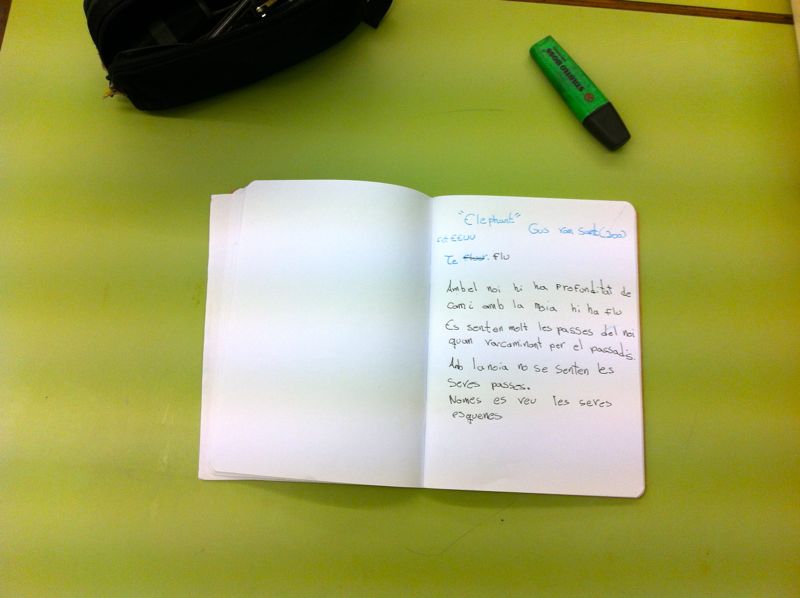 STABILO BOSS
"Elephant"
Gus van Sant (200
EEUU
Te flu
Ambel noi hi ha profunditat de
camí amb la noia hi ha flu
Es senten molt les passes del noi
quan varcaminant per el passadis.
Amb lanoia no se senten les
seves passes.
Nomes es veu les seves
esquenes